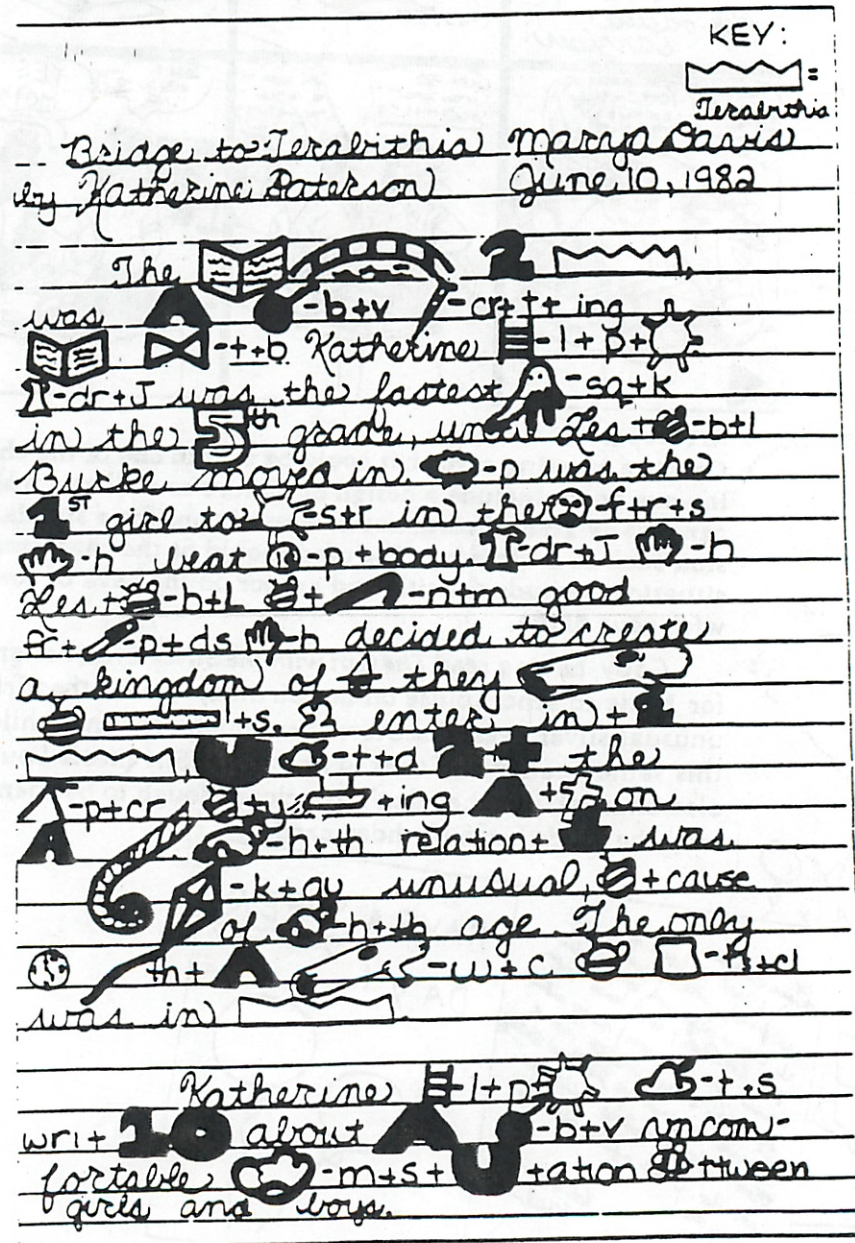 KEY:
=
Terabithia
Bridge to Terabithia Marya Davis
by Katherine Paterson June 10, 1982
The 2
was A -b+v -cr+t+ing
-t+b Katherine -l+p+
-dr+J was the fastest -sq+k
in the 5th grade, until Les+ -b+l
Burke moved in. -p was the
1ST girl to -s+r in the -f+r+s
-h beat -p+body. -dr+J -h
Les+ -b+L + -n+m good
fr+ -p+ds -h decided to create
a kingdom of they
+s. 2 enter in+2
, U -t+d 2+ the
-p+cr, +y +ing A+ on
A -h+th relation+ was
-k+qu unusual, +cause
of -h+th age. The only
th+A -w+c -h+d
was in .
Katherine -l+p+ -t+s
writ10 about A -b+v uncom-
fortable -m+s+U+ation +tween
girls and boys.